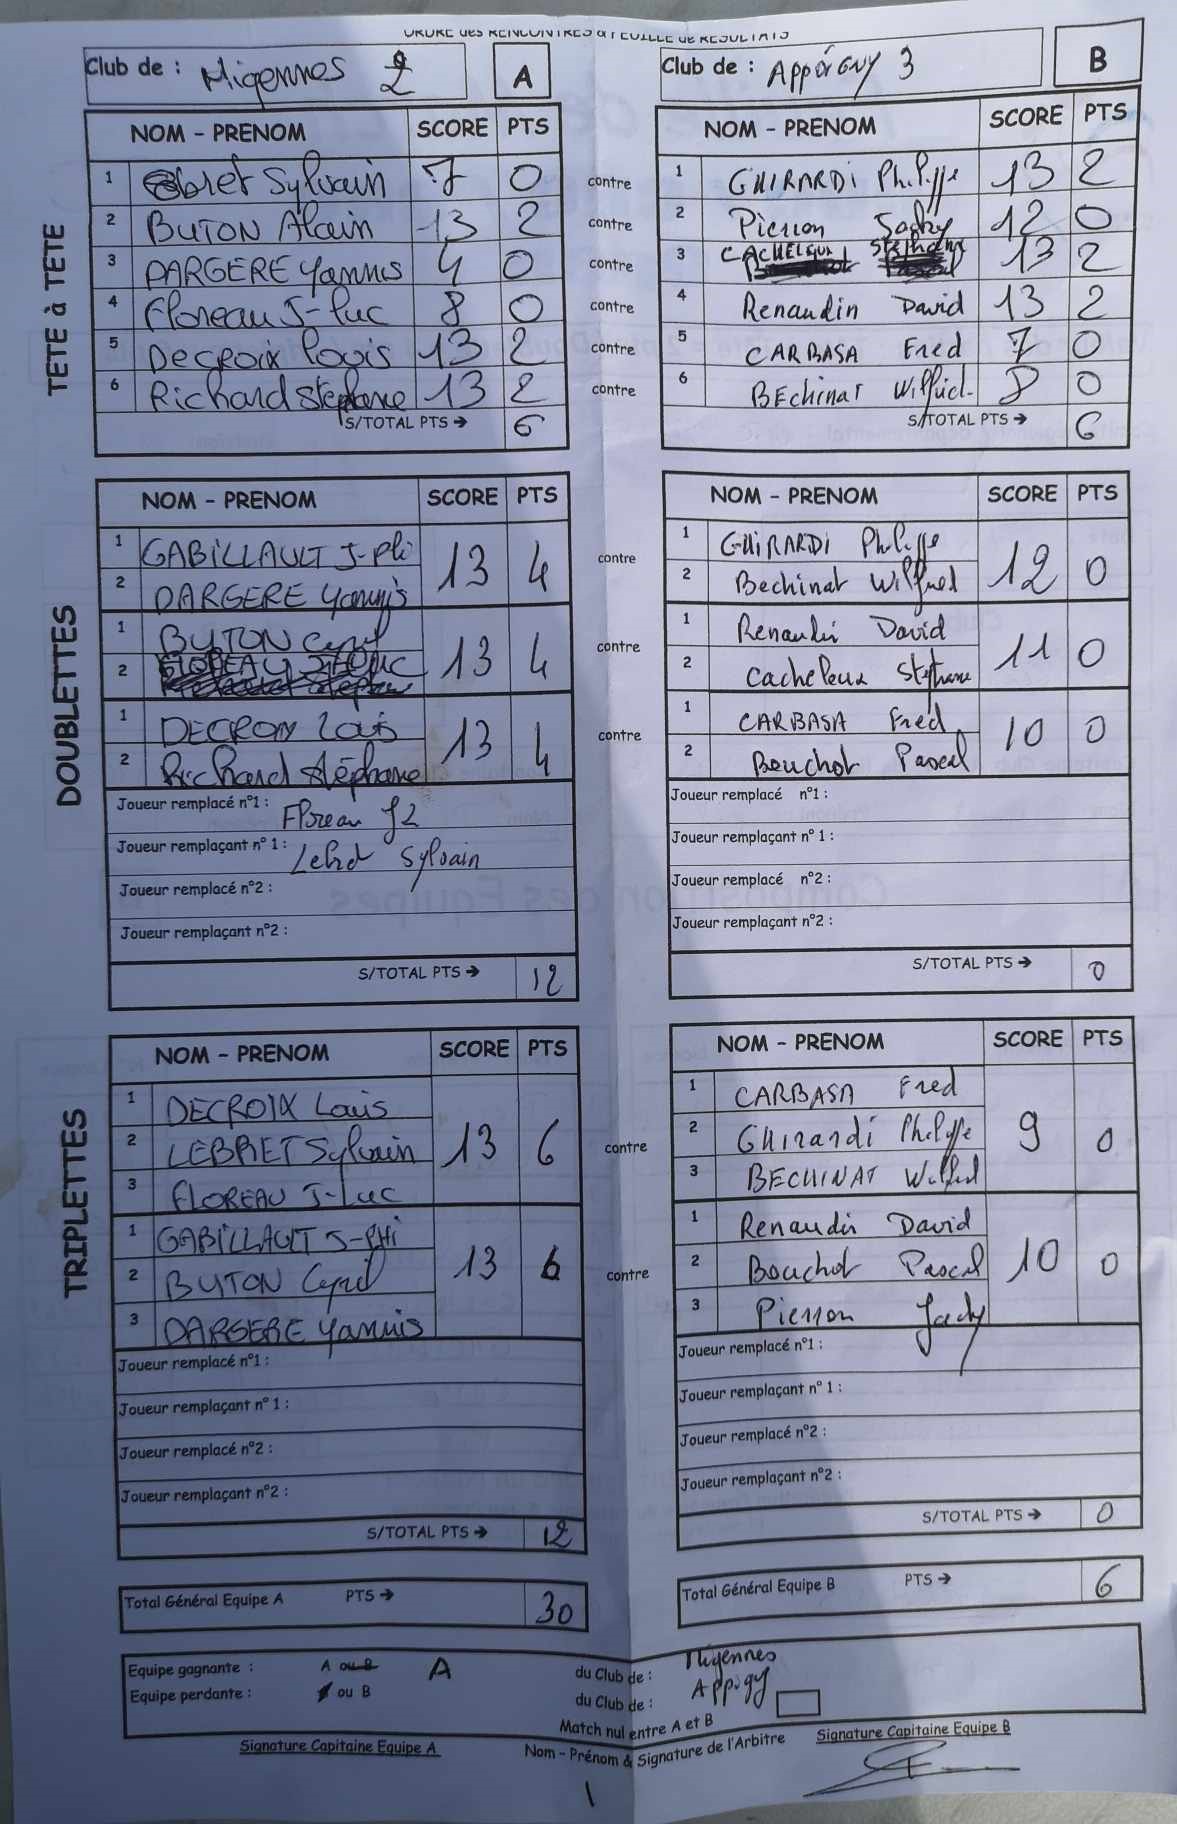 ORDRE des RENCONTRES & FEUILLE de RESULTATS
Club de : Migennes 2 A
Club de : Appoigny 3 B
TETE à TETE
NOM - PRENOM SCORE PTS
NOM - PRENOM SCORE PTS
1 Sylvain 7 0 contre 1 GHIRARDI Philippe 13 2
2 BUTON Alain 13 2 contre 2 Pierron Jacky 12 0
3 DARGERE Yannis 4 0 contre 3 CACHELEUX Stéphane 13 2
4 Floreau J-Luc 8 0 contre 4 Renaudin David 13 2
5 Decroix Louis 13 2 contre 5 CARBASA Fred 7 0
6 Richard Stéphane 13 2 contre 6 BEchinat Wilfried 8 0
S/TOTAL PTS → 6
S/TOTAL PTS → 6
DOUBLETTES
NOM - PRENOM SCORE PTS
NOM - PRENOM SCORE PTS
1 GABILLAULT J-Phi
2 DARGERE Yannis
13 4 contre
1 GHIRARDI Philippe
2 Bechinat Wilfried
12 0
1 BUTON Cyril
2 FLOREAU J-LUC
13 4 contre
1 Renaudin David
2 Cacheleux Stephane
11 0
1 DECROIX Louis
2 Richard Stéphane
13 4 contre
1 CARBASA Fred
2 Bouchot Pascal
10 0
Joueur remplacé n°1 : Floreau JL
Joueur remplaçant n° 1 : Sylvain
Joueur remplacé n°2 :
Joueur remplaçant n°2 :
S/TOTAL PTS → 12
Joueur remplacé n°1 :
Joueur remplaçant n° 1 :
Joueur remplacé n°2 :
Joueur remplaçant n°2 :
S/TOTAL PTS → 0
TRIPLETTES
NOM - PRENOM SCORE PTS
NOM - PRENOM SCORE PTS
1 DECROIX Louis
2 LEBRET Sylvain
3 FLOREAU J-Luc
13 6 contre
1 CARBASA Fred
2 Ghirardi Philippe
3 BECHINAT Wilfried
9 0
1 GABILLAULT J-PHi
2 BUTON Cyril
3 DARGERE Yannis
13 6 contre
1 Renaudin David
2 Bouchot Pascal
3 Pierron Jacky
10 0
Joueur remplacé n°1 :
Joueur remplaçant n° 1 :
Joueur remplacé n°2 :
Joueur remplaçant n°2 :
S/TOTAL PTS → 12
Joueur remplacé n°1 :
Joueur remplaçant n° 1 :
Joueur remplacé n°2 :
Joueur remplaçant n°2 :
S/TOTAL PTS → 0
Total Général Equipe A PTS → 30
Total Général Equipe B PTS → 6
Equipe gagnante : A ou B A du Club de : Migennes
Equipe perdante : A ou B du Club de : Appoigy
Match nul entre A et B
Signature Capitaine Equipe A
Nom - Prénom & Signature de l'Arbitre
Signature Capitaine Equipe B